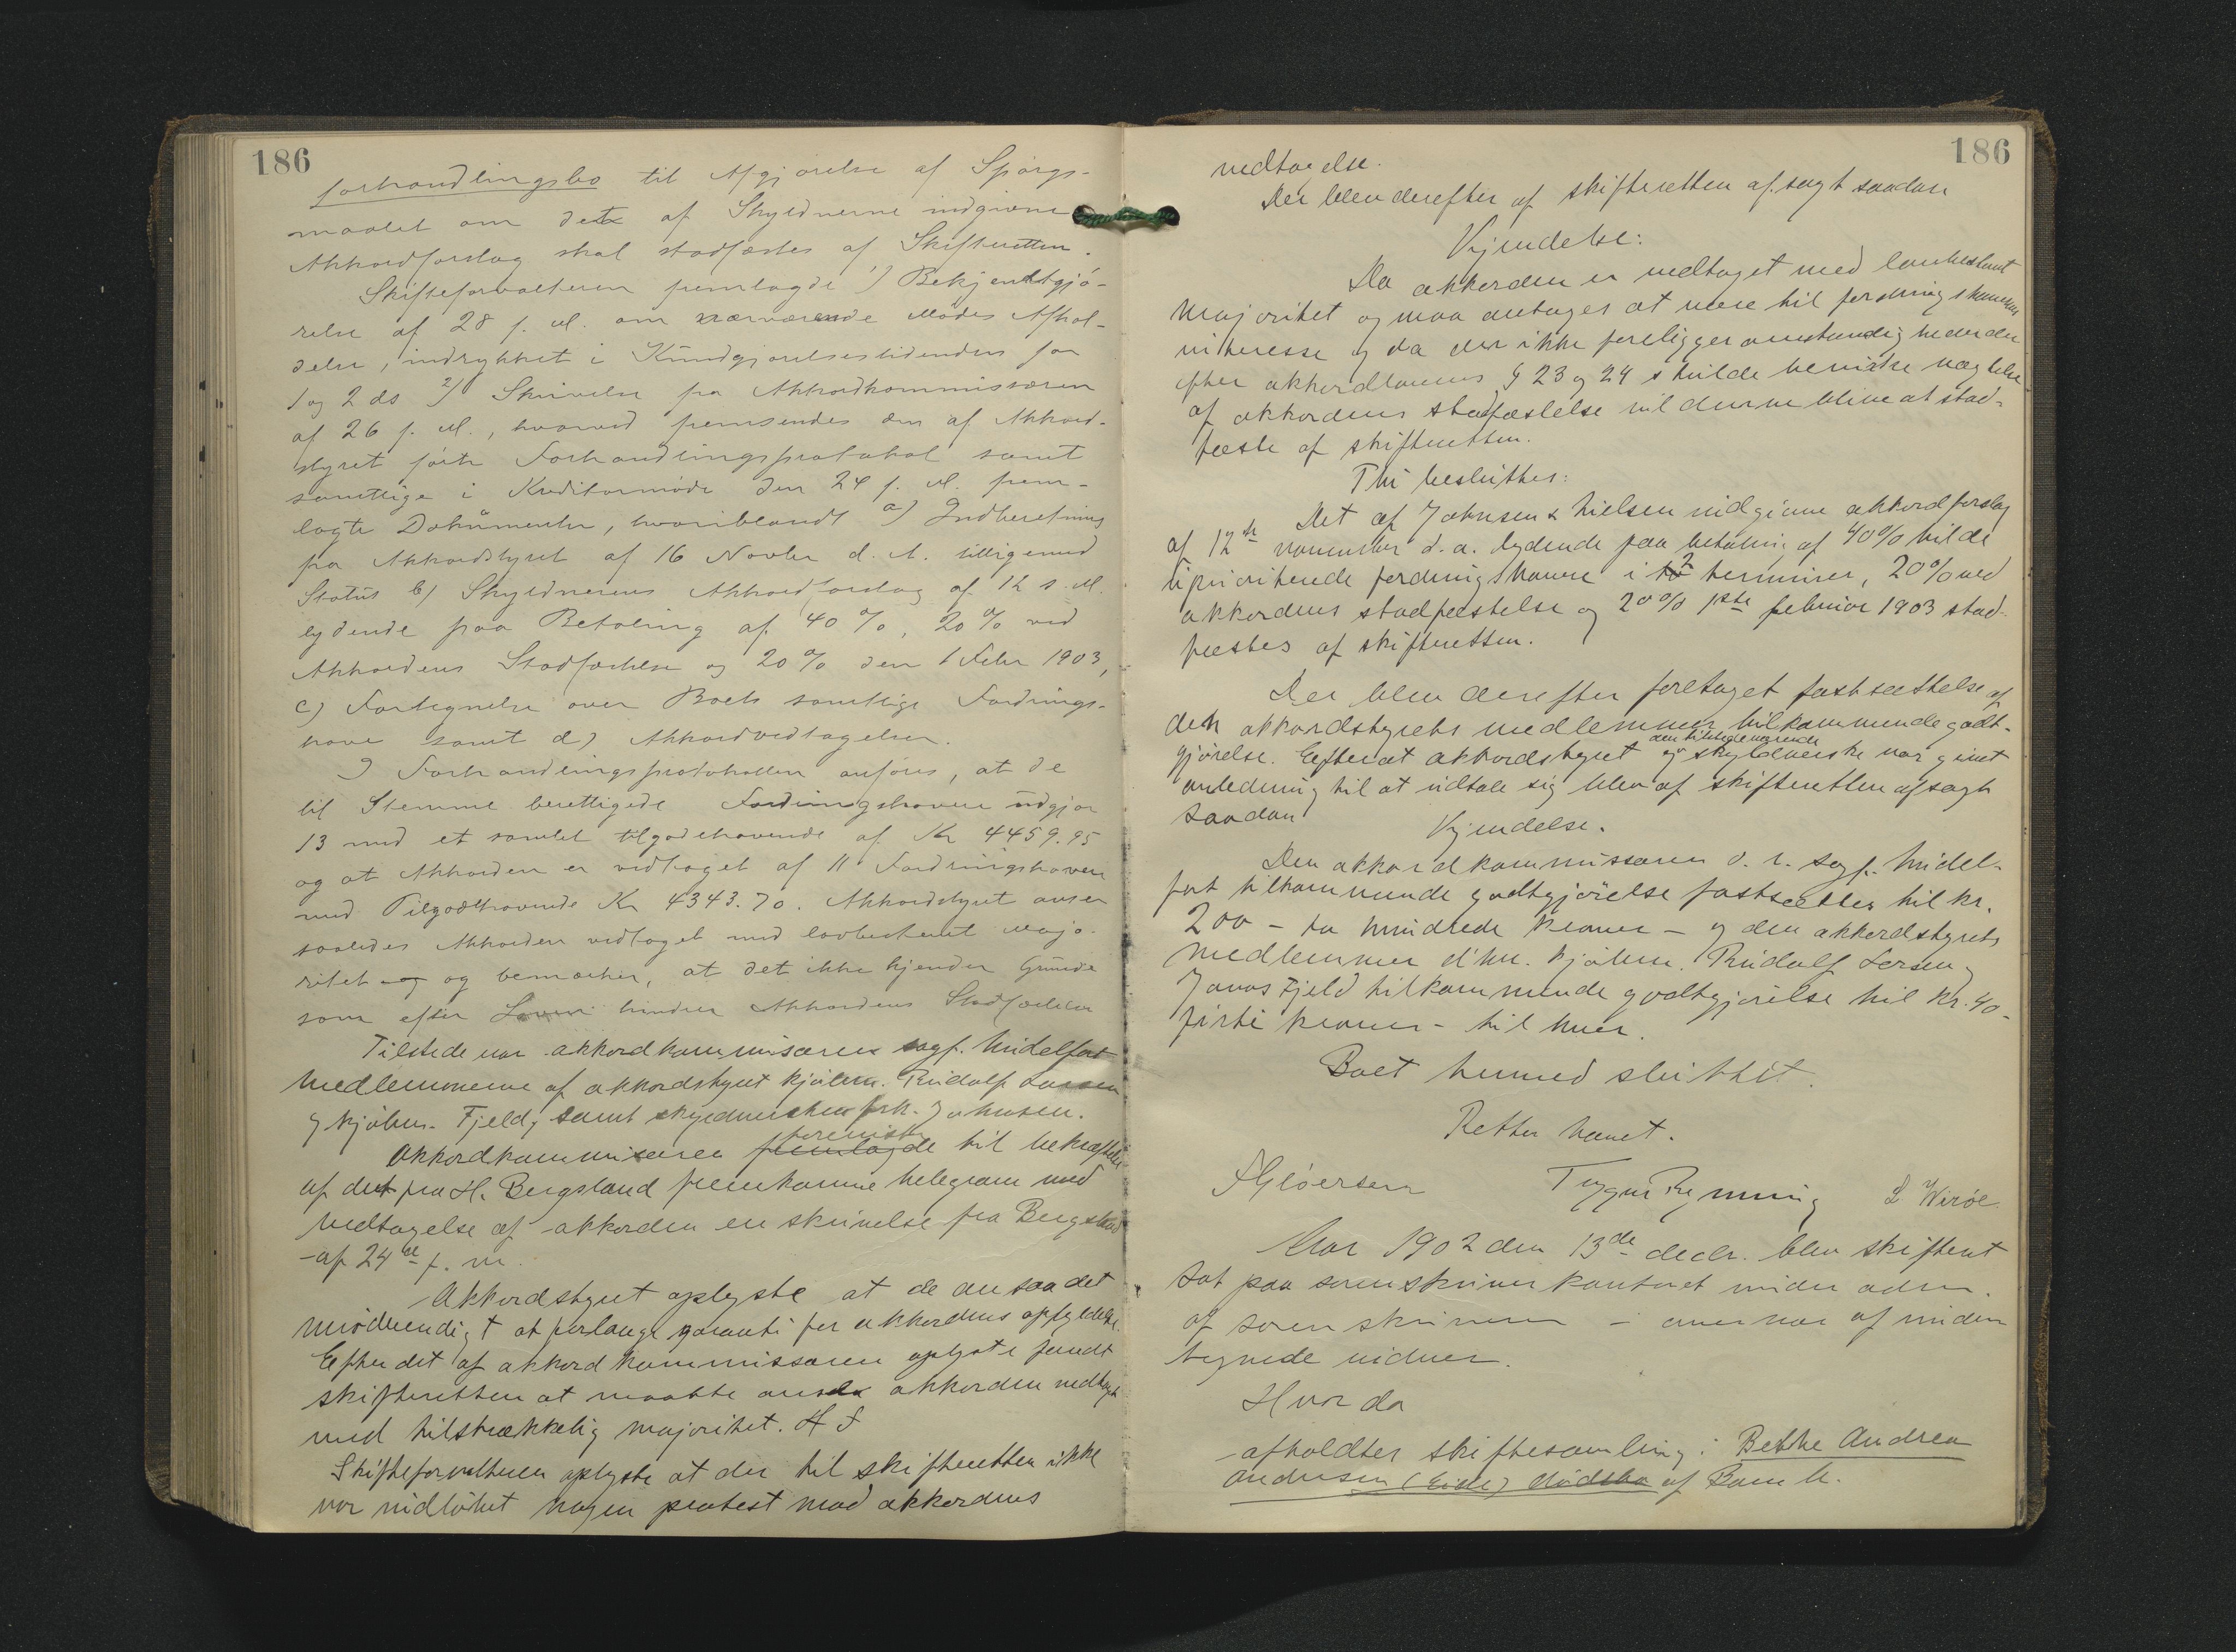 186
forhandlingsbo til Afgjørelse af Spørgs-
maalet om det af Skyldnerne indgivne
Akkordforslag skal stadfæstes af Skifteretten.
Skifteforvalteren fremlagde 1) Bekjendtgjø-
relse af 28 f. M. om nærværende Mødes Afhol-
delse, indrykket i Kundgjørelsestidenden for
1 og 2 ds 2) Skrivelse fra Akkordkommissæren
af 26 f. M., hvorved fremsendes den af Akkord-
styret førte Forhandlingsprotokol samt
samtlige i Kreditormøde den 24 f. M. frem-
lagte Dokumenter, hvoriblandt a) Indberetning
fra Akkordstyret af 16 Novbr d. A. tilligemed
Status b) Skyldnerens Akkordforslag af 12 s. M.
lydende paa Betaling af 40 %, 20 % ved
Akkordens Stadfæstelse og 20 % den 1 Febr 1903,
c) Fortegnelse over Boets samtlige Fordrings-
have samt d) Akkordvedtagelsen.
I Forhandlingsprotokollen anføres, at de
til Stemme berettigede Fordringshavere udgjør
13 med et samlet tilgodehavende af Kr 4459.95
og at Akkorden er vedtaget af 11 Fordringshavere
med Tilgodehavende Kr 4343.70. Akkordstyret anser
saaledes Akkorden vedtaget med lovbestemt Majo-
ritet og og bemærker, at det ikke kjender Grunde
som efter Loven hindrer Akkordens Stadfæstelse
Tilstede var akkordkommissæren sagf. Midelfart
medlemmerne af akkordstyret kjøbm. Rudolf Larsen
og kjøbm. Fjeld, samt skyldnersken frk. Johnsen.
foreviste
Akkordkommissæren fremlagde til bekræftelse
af det fra H. Bergsland fremkomne telegram med
vedtagelse af akkorden en skrivelse fra Bergsland
af 24de f. m.
Akkordstyret oplyste at de ansaa det
unødvendigt at forlange garanti for akkordens opfyldelse.
Efter det af akkordkommissæren oplyste fandt
skifteretten at maatte anse akkorden vedtaget
med tilstrækkelig majoritet.
Skifteforvalteren oplyste at der til skifteretten ikke
var indløbet nogen protest mod akkordens
186
vedtagelse.
Der blev derefter af skifteretten afsagt saadan
Kjendelse:
Da akkorden er vedtaget med lovbestemt
majoritet og maa antages at være til fordringshavernes
interesse og da der ikke foreligger omstændigheder der
efter akkordlovens § 23 og 24 skulde bevirke nægtelse
af akkordens stadfæstelse vil denne blive at stad-
fæste af skifteretten.
Thi besluttes:
Det af Johnsen & Nielsen indgivne akkordforslag
af 12te november d. a. lydende paa betaling af 40% til de
uprioriterede fordringshavere i 2 terminer, 20% ved
akkordens stadfæstelse og 20% 1ste februar 1903 stad-
fæstes af skifteretten.
Der blev derefter foretaget fastsættelse af
den akkordstyrets medlemmer tilkommende godt-
den tilstedeværende
gjørelse. Efterat akkordstyret og skyldnerske var givet
anledning til at udtale sig blev af skifteretten afsagt
saadan
Kjendelse.
Den akkordkommissæren o. r. sagf. Midel-
fart tilkommende godtgjørelse fastsættes til kr.
200 – to hundrede kroner – og den akkordstyrets
medlemmer d'hrr. kjøbm. Rudolf Larsen og
Jonas Fjeld tilkommende godtgjørelse til kr. 40 –
førti kroner – til hver.
Boet hermed sluttet.
Retten hævet.
Gløersen Trygve Rynning L Wirøe
Aar 1902 den 13de decbr. blev skifteret
sat paa sorenskriverkontoret under adm.
af sorenskriveren – overvær af under
tegnede vidner.
Hvor da
afholdtes skiftesamling i Bethe Andrea
Andersen (Eide) dødsbo af Bamle.